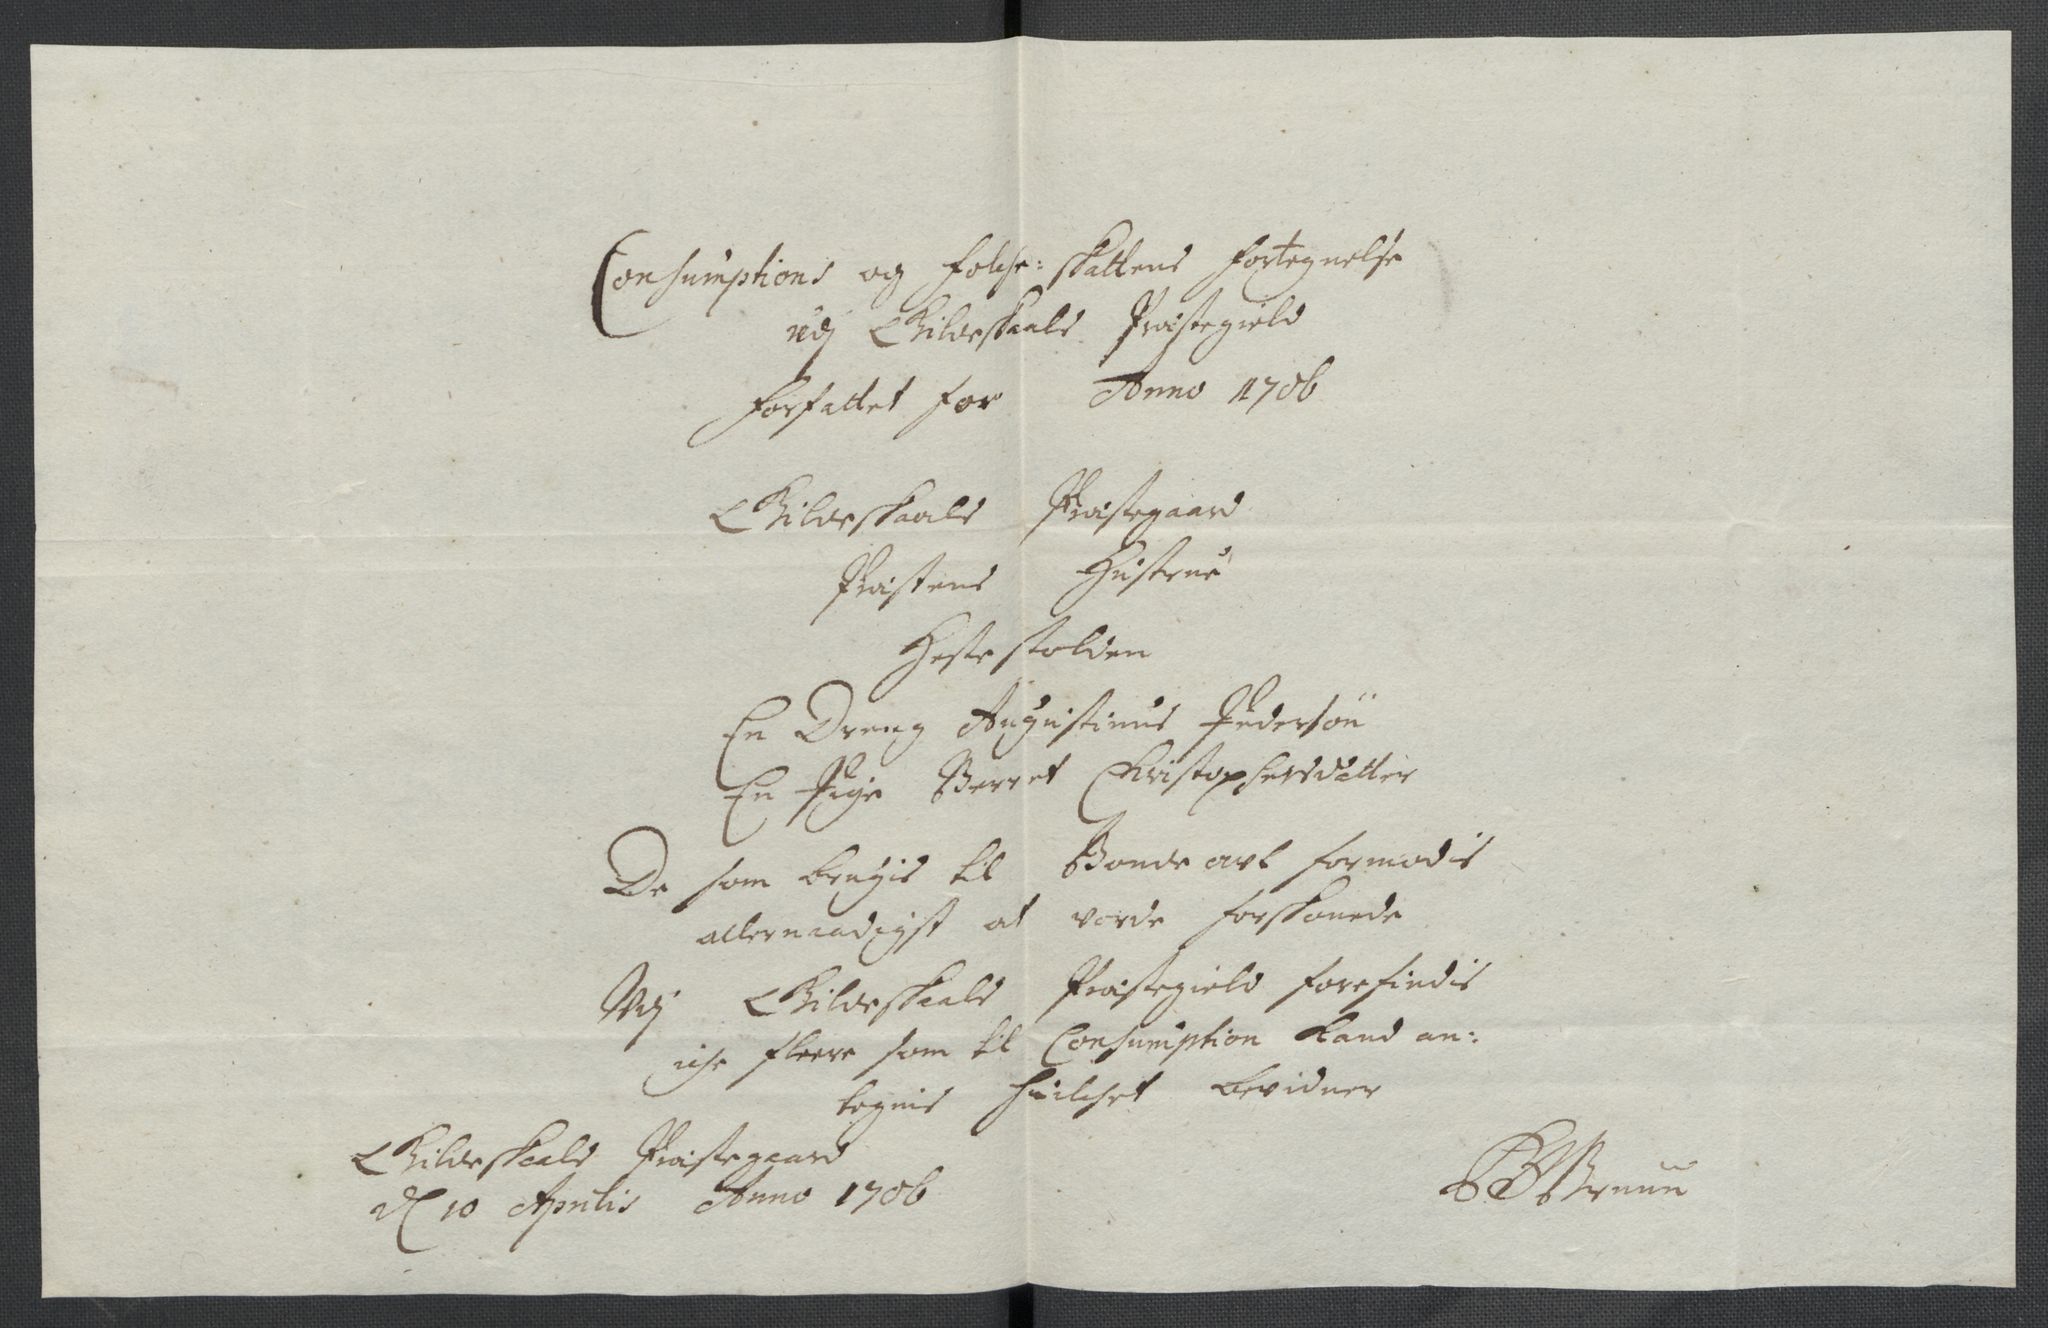 Consumptions og Folche: Skattens Fortegnelse
udj Gildeskaals Præstegield
forfattet for Anno 1706
Gildeskaals Præstegaard
Præstens Hustrue
Heste holden
En Dreng Augustinus Pedersøn
En Pige Berret Christophersdatter
De som brugis til Bonde avl formodis
allernaadigst at vorde forskonede
Udj Gildeskaals Præstegield forefindis
iche fleere som til Consumption kand an:
tegnis huilchet bevidner
Gildeskaals Præstegaard
d 10 Aprilis Anno 1706
Bruun